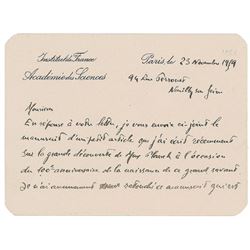 Institut de France
Académie des Sciences
Paris, le 25 Novembre 19
94 Rue Perronet
Neuilly sur Seine
Monsieur
En réponse à votre lettre, je vous envoie ci-joint le
manuscrit d'un petit article que j'ai écrit récemment
sur la grande découverte de Max Planck à l'occasion
du 100e anniversaire de la naissance de ce grand savant.
Je n'ai aucunement retouché ce manuscrit qui est